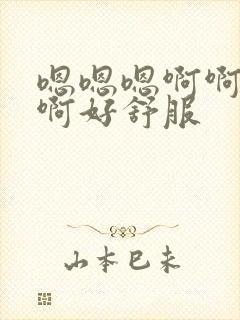 嗯嗯嗯啊啊
啊好舒服
山本巳未